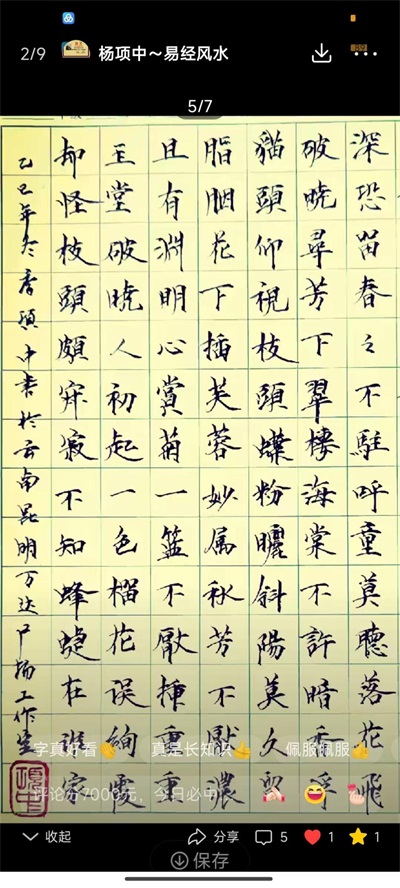 2/9 杨项中～易经风水
5/7
深恐畄春々不駐呼童莫聽落花飛
破曉尋芳下翠樓海棠不許暗香浮
貓頭仰視枝頭蝶粉曬斜陽莫久留
脂胭花下插芙蓉妙属秋芳不厭濃
且有淵明心賞菊一籃不厭插重重
玉堂破曉人初起一色榴花誤絢霞
却怪枝頭頗寂不知蜂蝶在誰家
乙巳年冬項中書於云南昆明万达广场工作室
項中
字真好看👏 真是长知识👍 佩服佩服👍
评论分7000元，今日必中
收起 分享 5 1 1
保存